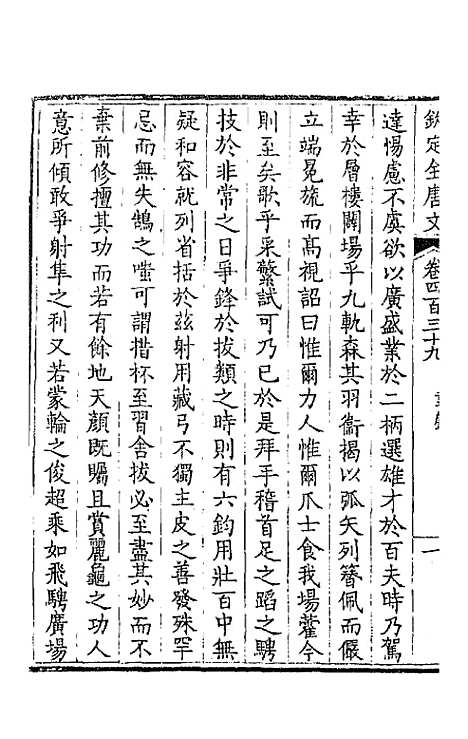 欽定全唐文 卷四百三十九 一
達惕慮不虞欲以廣盛業於二柄選雄才於百夫時乃駕
幸於層樓闢場乎九軌森其羽衞揭以弧矢列簪佩而儼
立端冕旒而髙視詔曰惟爾力人惟爾爪士食我場藿今
則至矣歌乎采蘩試可乃已於是拜手稽首足之蹈之騁
技於非常之日爭鋒於拔類之時則有六鈞用壯百中無
疑和容就列省括於兹射用藏弓不獨主皮之善發殊罕
忌而無失鵠之嗤可謂措杯至習舍拔必至盡其妙而不
棄前修擅其功而若有餘地天顔既矚且賞麗龜之功人
意所傾敢爭射隼之利又若蒙輪之俊超乘如飛騁廣場